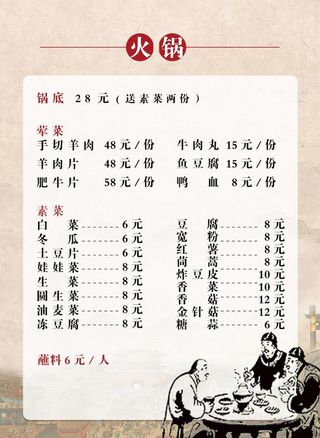 火锅
锅底 28元(送素菜两份)
荤菜
手切羊肉 48元/份 牛肉丸 15元/份
羊肉片 48元/份 鱼豆腐 15元/份
肥牛片 58元/份 鸭血 8元/份
素菜
白菜 6元 豆腐 8元
冬瓜 6元 宽粉 8元
土豆片 6元 红薯 8元
娃娃菜 8元 茼蒿 8元
生菜 8元 炸豆皮 10元
圆生菜 8元 香菜 10元
油麦菜 8元 香菇 12元
冻豆腐 8元 金针菇 12元
糖蒜 6元
蘸料6元/人